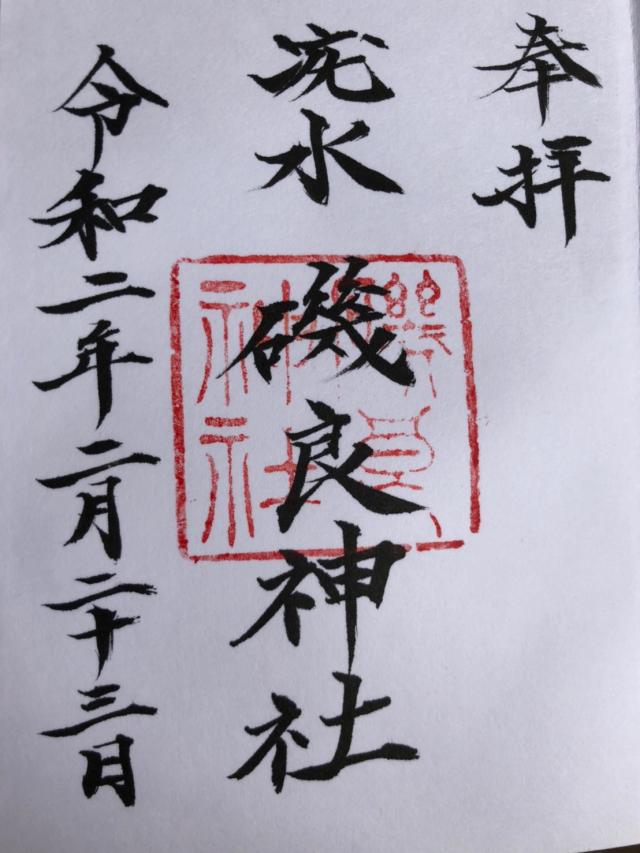 奉拝
疣水 磯良神社
磯良
神社
令和二年二月二十三日